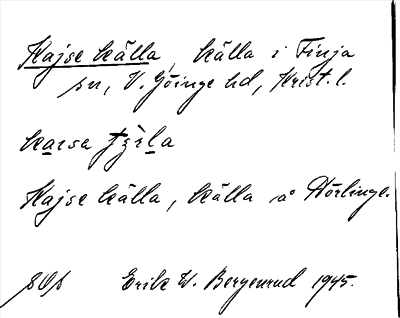 Kajse källa, källa i Finja
sn, V. Göinge hd, Krist. l.
Kajse källa, källa å Hörlinge.
Erik W. Bergenrud 1945.